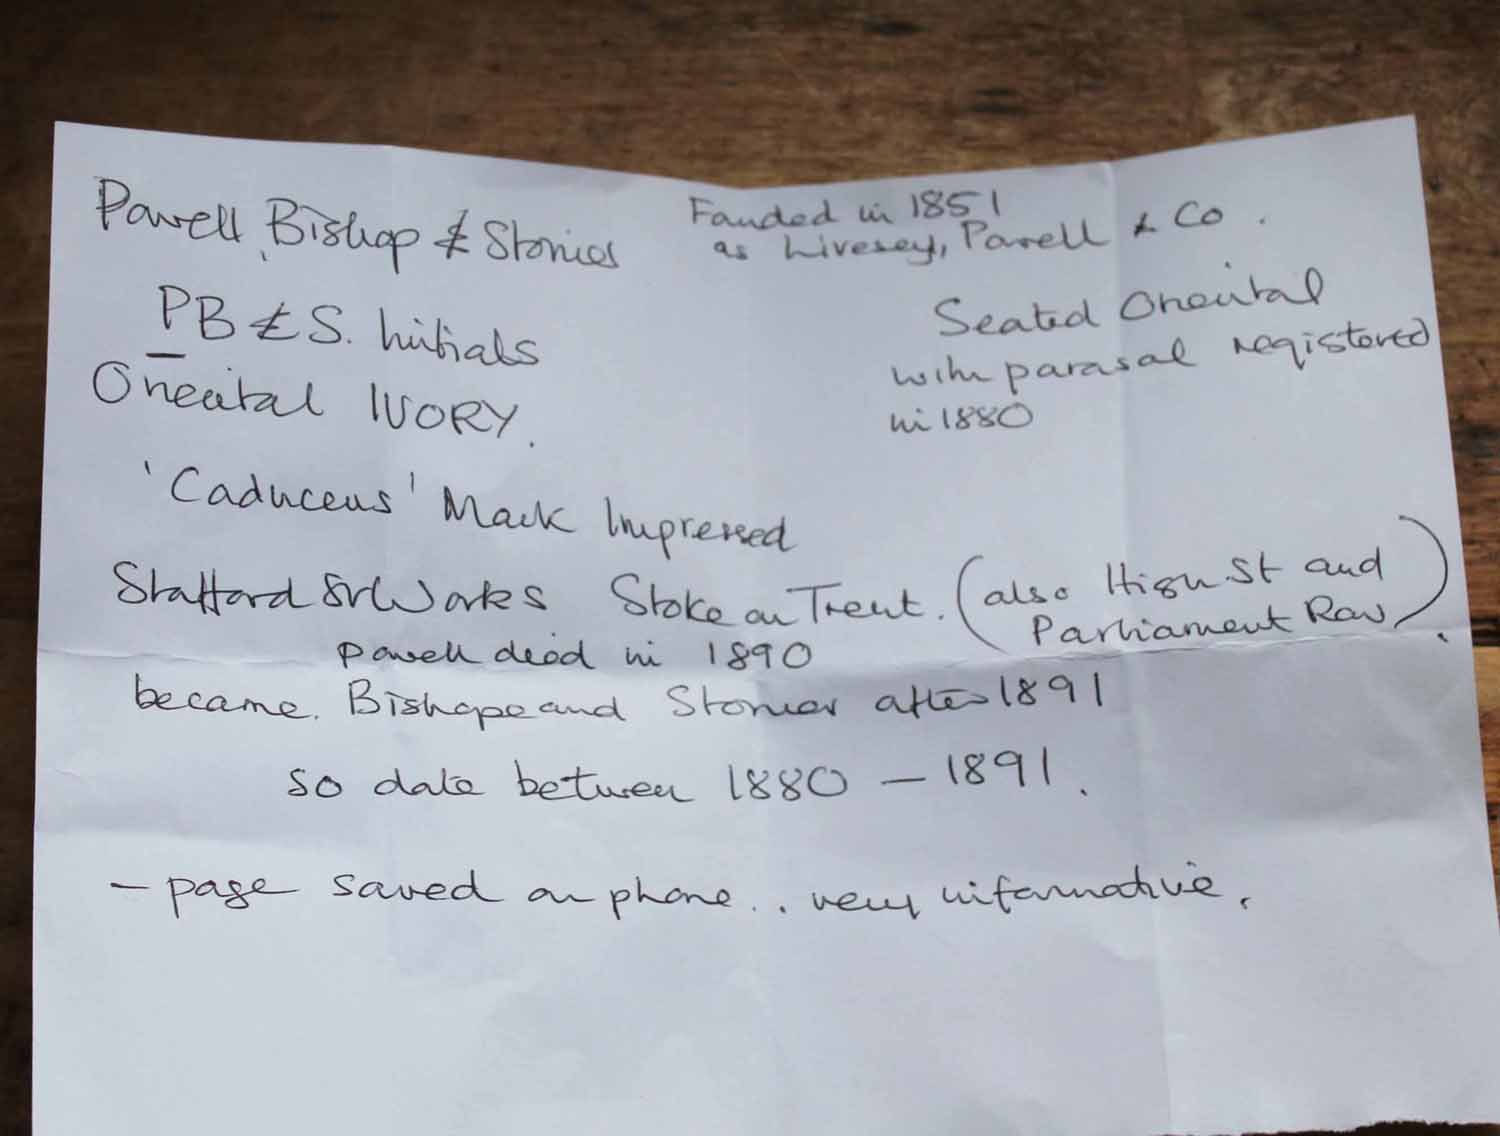 Powell, Bishop & Stonier
Founded in 1851
as Livesey, Powell & Co.
PB & S. Initials
Seated Oriental
with parasal registered
in 1880
Oriental IVORY.
'Caduceus' Mark Impressed
Stafford St Works Stoke on Trent. (also High St and
Parliament Row).
Powell died in 1890
became. Bishope and Stonier after 1891
so date between 1880 – 1891.
– page saved on phone.. very informative.